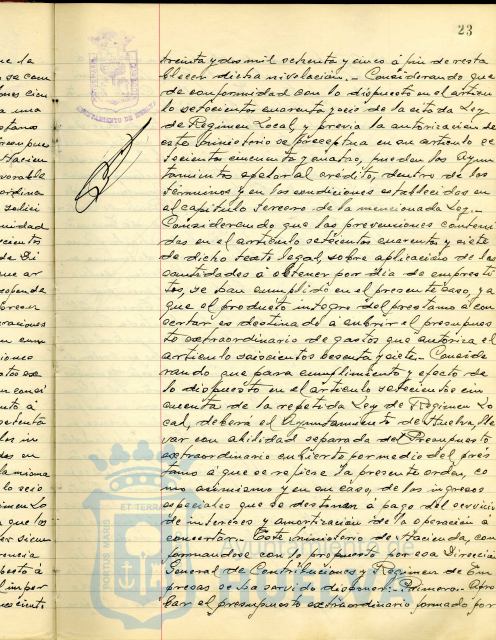 23
treinta y dos mil setenta y cinco á fin de resta
blecer dicha nivelación.- Considerando que
de conformidad con lo dispuesto en el artícu
lo setecientos cuarenta y seis de la citada Ley
de Regimen Local, y previa la autorización de
este Ministerio se preceptua en su artículo se
tecientos cincuenta y cuatro, pueden los Ayun
tamientos apelar al crédito, dentro de los
términos y en las condiciones establecidas en
el capítulo tercero de la mencionada Ley.-
Considerando que las prevenciones conteni
das en el artículo setecientos cuarenta y siete
de dicho texto legal, sobre aplicación de las
cantidades á obtener por vía de emprésti
tos, se han cumplido en el presente caso, ya
que el producto integro del prestamo á con
certar es destinado á cubrir el presupues
to extraordinario de gastos que autoriza el
artículo seiscientos sesenta y siete.- Conside
rando que para cumplimiento y efecto de
lo dispuesto en el artículo setecientos cin
cuenta de la repetida Ley de Regimen Lo
cal, deberá el Ayuntamiento de Huelva, lle
var contabilidad separada del Presupuesto
extraordinario cubierto por medio del prés
tamo á que se refiere la presente orden, co
mo asimismo y en su caso, de los ingresos
especiales que se destinan á pago del servicio
de intereses y amortización de la operación á
concertar.- Este Ministerio de Hacienda, con
formandose con lo propuesto por esa Dirección
General de Contribuciones y Regimen de Em
presas se ha servido disponer:- Primero.- Apro
bar el presupuesto extraordinario formado por
AYUNTAMIENTO DE HUELVA
PORTUS MARIS ET TERRAE